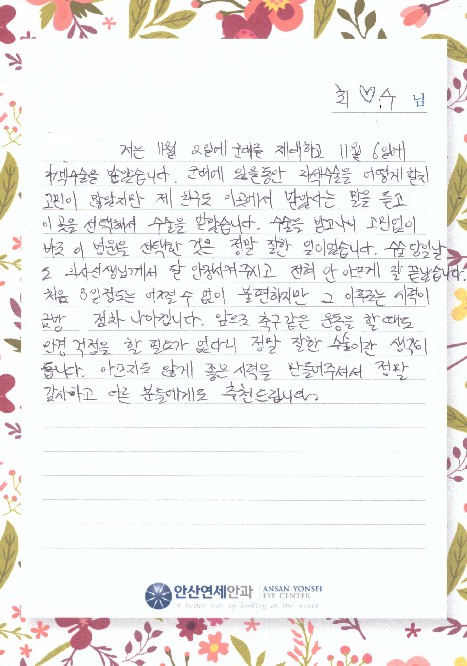 최♡수 님
저는 11월 2일에 군대를 제대하고 11월 6일에
라섹수술을 받았습니다. 군대에 있을동안 라섹수술을 어떻게 할지
고민이 많았지만 제 친구도 이곳에서 받았다는 말을 듣고
이곳을 선택해서 수술을 받았습니다. 수술을 받고나니 고민없이
바로 이 병원을 선택한 것은 정말 잘한 일이었습니다. 수술 당일날
도 의사선생님께서 잘 안정시켜주시고 전혀 안 아프게 잘 끝났습니다.
처음 3일정도는 어쩔 수 없이 불편하지만 그 이후로는 시력이
금방 점차 나아집니다. 앞으로 축구같은 운동을 할 때도
안경 걱정을 할 필요가 없다니 정말 잘한 수술이란 생각이
듭니다. 아프지도 않게 좋은 시력을 만들어주셔서 정말
감사하고 다른 분들에게도 추천드립니다.
안산연세안과 ANSAN YONSEI
EYE CENTER
A better way of looking at the world